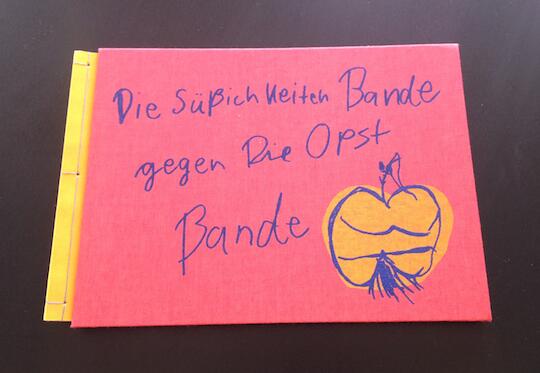 Die Süßichkeiten Bande
gegen Die Opst
Bande